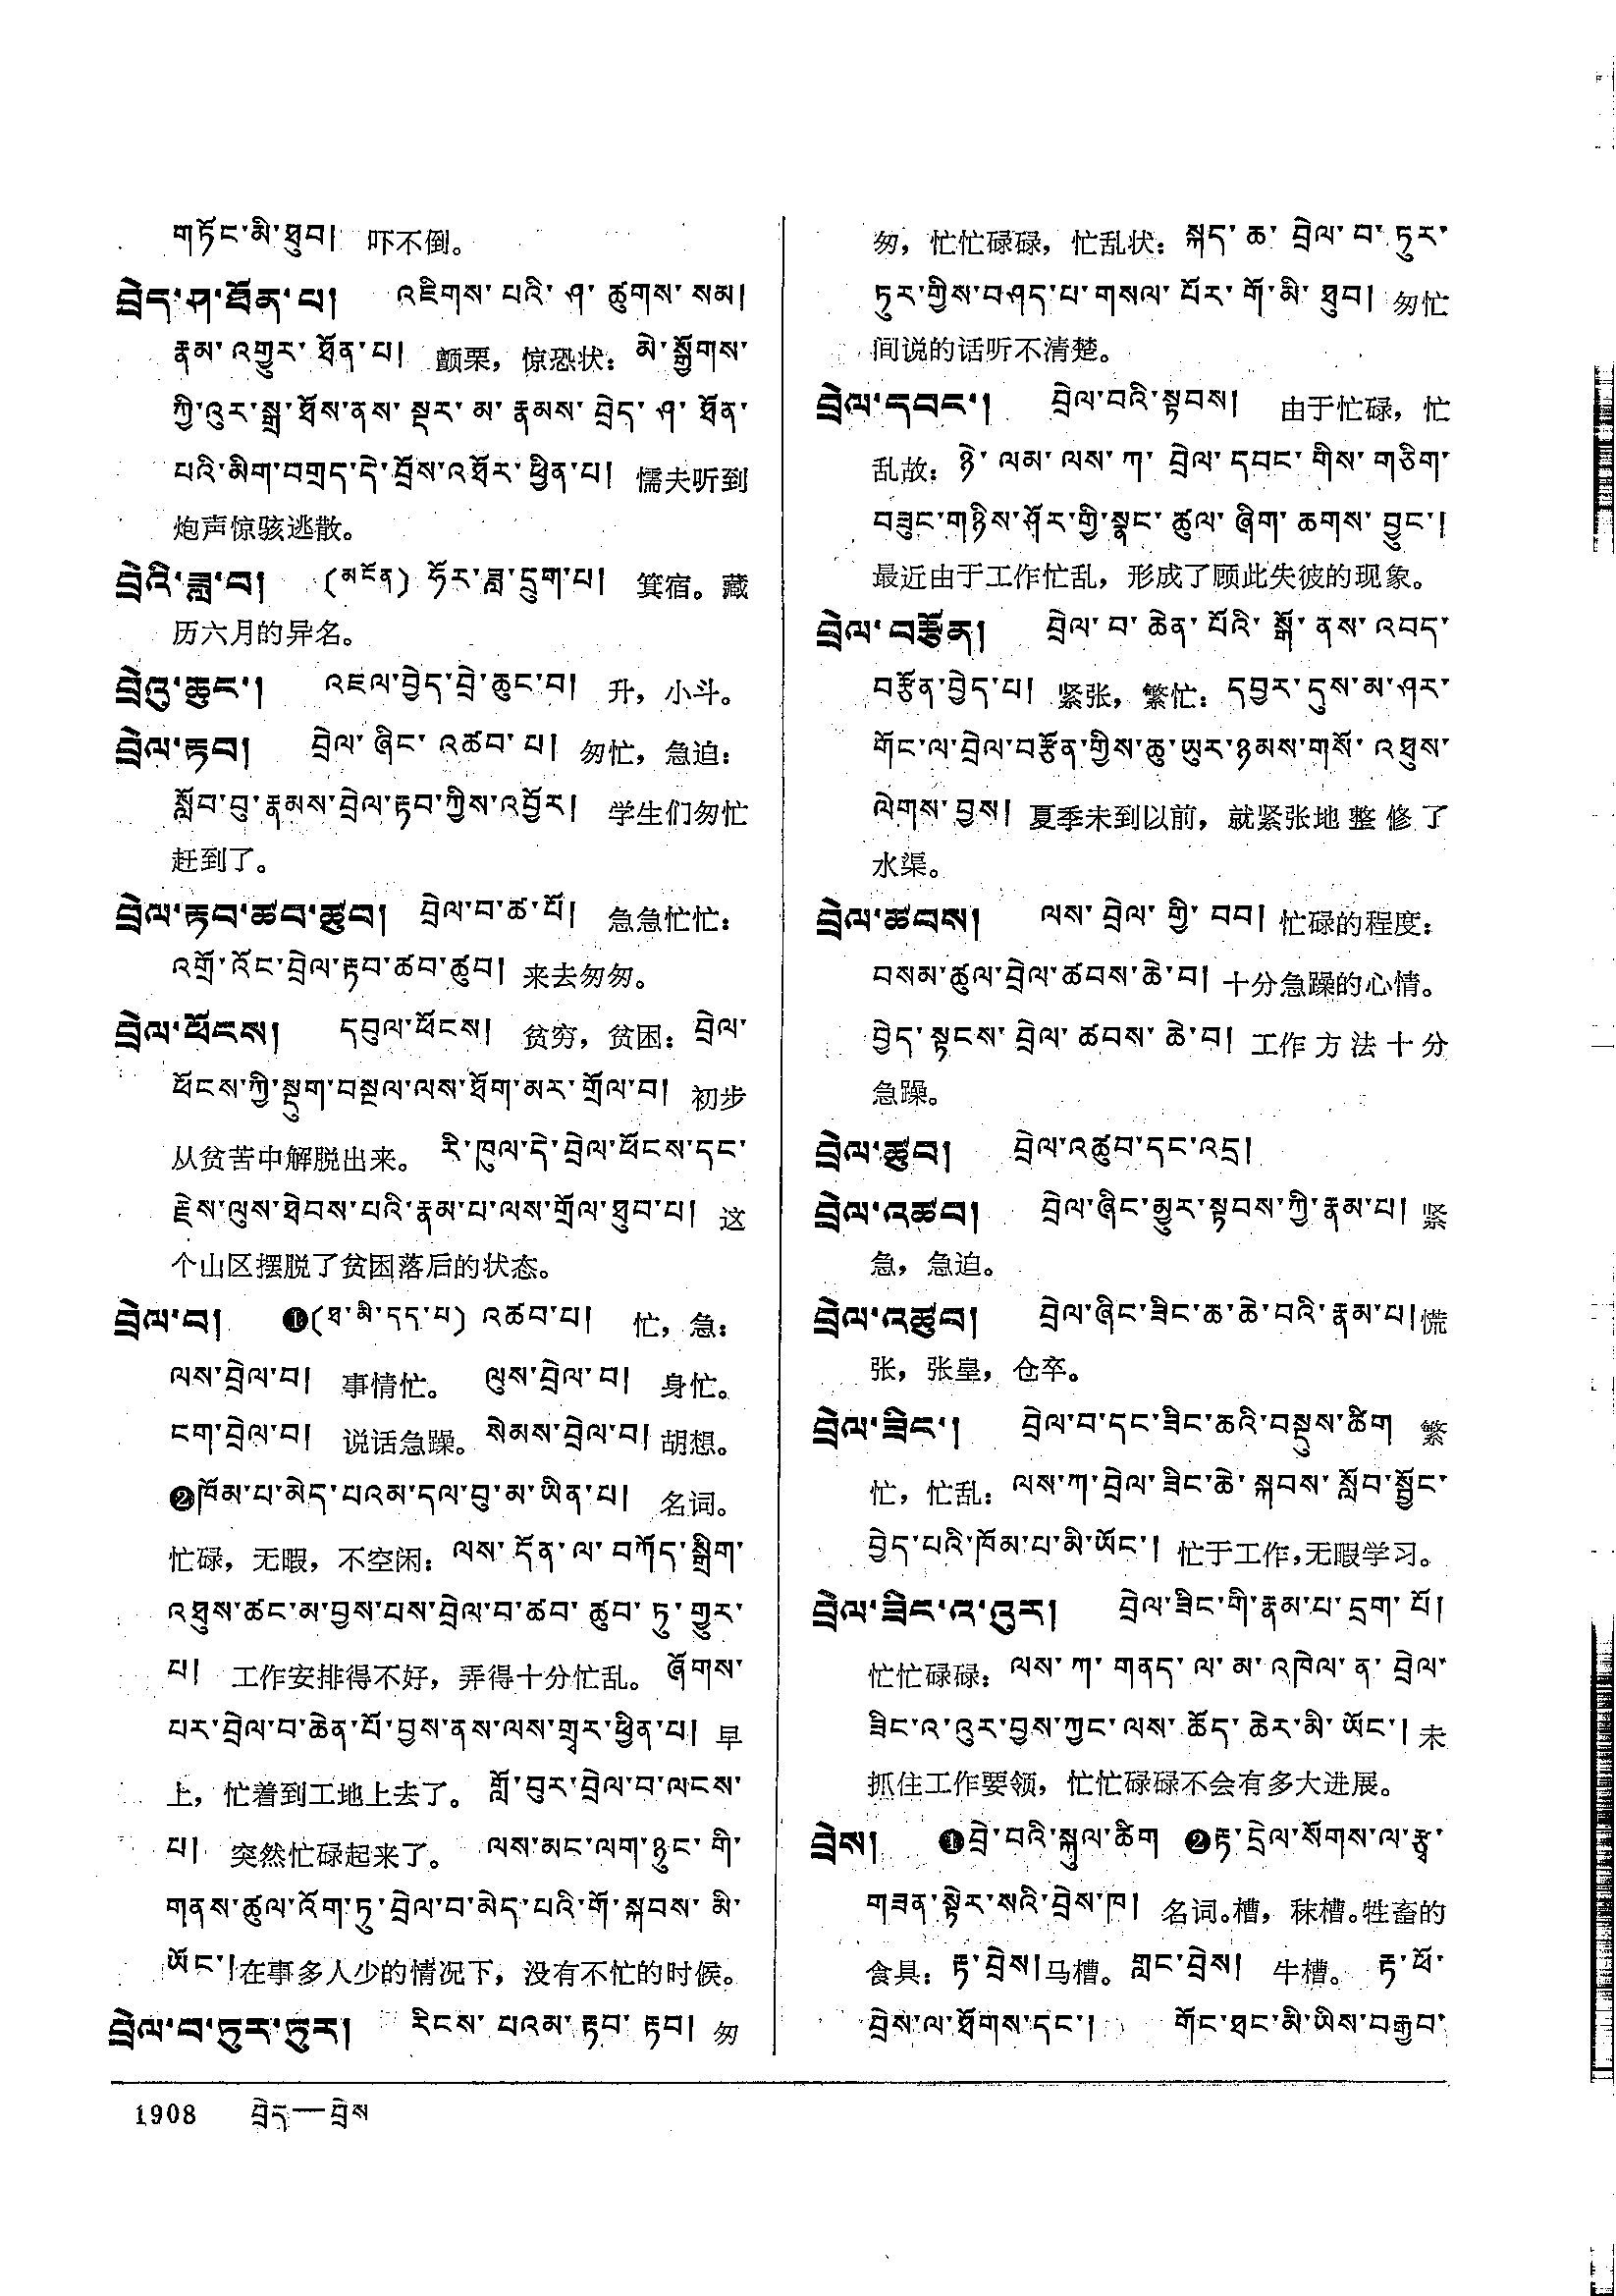 གཏོང་མི་ཐུབ། 吓不倒。
བྲེད་ཤ་ཐོན་པ། འཇིགས་པའི་ཤ་ཚུགས་སམ།
རྣམ་འགྱུར་ཐོན་པ། 颤栗，惊恐状：མེ་སྒྱོགས་
ཀྱི་འུར་སྒྲ་ཐོས་ནས་སྡར་མ་རྣམས་བྲེད་ཤ་ཐོན་
པའི་མིག་བགྲད་དེ་བྲོས་འཐོར་ཕྱིན་པ། 懦夫听到
炮声惊骇逃散。
བྲེའི་ཟླ་བ། (མངོན) ཧོར་ཟླ་དྲུག་པ། 箕宿。藏
历六月的异名。
བྲེའུ་ཆུང་། འཇལ་བྱེད་བྲེ་ཆུང་བ། 升，小斗。
བྲེལ་རྟབ། བྲེལ་ཞིང་འཚབ་པ། 匆忙，急迫：
སློབ་བུ་རྣམས་བྲེལ་རྟབ་ཀྱིས་འབྱོར། 学生们匆忙
赶到了。
བྲེལ་རྟབ་ཚབ་ཚུབ། བྲེལ་བ་ཚ་པོ། 急急忙忙：
འགྲོ་འོང་བྲེལ་རྟབ་ཚབ་ཚུབ། 来去匆匆。
བྲེལ་ཕོངས། དབུལ་ཕོངས། 贫穷，贫困：བྲེལ་
ཕོངས་ཀྱི་སྡུག་བསྔལ་ལས་ཐོག་མར་གྲོལ་བ། 初步
从贫苦中解脱出来。 རི་ཁུལ་དེ་བྲེལ་ཕོངས་དང་
རྗེས་ལུས་ཐེབས་པའི་རྣམ་པ་ལས་གྲོལ་ཐུབ་པ། 这
个山区摆脱了贫困落后的状态。
བྲེལ་བ། ❶(ཐ་མི་དད་པ) འཚབ་པ། 忙，急：
ལས་བྲེལ་བ། 事情忙。 ལུས་བྲེལ་བ། 身忙。
ངག་བྲེལ་བ། 说话急躁。སེམས་བྲེལ་བ། 胡想。
❷ཁོམ་པ་མེད་པའམ་དལ་བུ་མ་ཡིན་པ། 名词。
忙碌，无暇，不空闲：ལས་དོན་ལ་བཀོད་སྒྲིག་
འཐུས་ཚང་མ་བྱས་པས་བྲེལ་བ་ཚབ་ཚུབ་ཏུ་གྱུར་
པ། 工作安排得不好，弄得十分忙乱。ཞོགས་
པར་བྲེལ་བ་ཆེན་པོ་བྱས་ནས་ལས་གྲྭར་ཕྱིན་པ། 早
上，忙着到工地上去了。གློ་བུར་བྲེལ་བ་ལངས་
པ། 突然忙碌起来了。 ལས་མང་ལག་ཉུང་གི་
གནས་ཚུལ་འོག་ཏུ་བྲེལ་བ་མེད་པའི་གོ་སྐབས་མི་
ཡོང་།在事多人少的情况下，没有不忙的时候。
བྲེལ་བ་ཏུར་ཏུར། རིངས་པའམ་རྟབ་རྟབ། 匆
匆，忙忙碌碌，忙乱状：སྐད་ཆ་བྲེལ་བ་ཏུར་
ཏུར་གྱིས་བཤད་པ་གསལ་པོར་གོ་མི་ཐུབ། 匆忙
间说的话听不清楚。
བྲེལ་དབང་། བྲེལ་བའི་སྟབས། 由于忙碌，忙
乱故：ཉེ་ལམ་ལས་ཀ་བྲེལ་དབང་གིས་གཅིག་
བཟུང་གཉིས་ཤོར་གྱི་སྣང་ཚུལ་ཞིག་ཆགས་བྱུང་།
最近由于工作忙乱，形成了顾此失彼的现象。
བྲེལ་བརྩོན། བྲེལ་བ་ཆེན་པོའི་སྒོ་ནས་འབད་
བརྩོན་བྱེད་པ། 紧张，繁忙：དབྱར་དུས་མ་ཤར་
གོང་ལ་བྲེལ་བརྩོན་གྱིས་ཆུ་ཡུར་ཉམས་གསོ་འཐུས་
ལེགས་བྱས། 夏季未到以前，就紧张地整修了
水渠。
བྲེལ་ཚབས། ལས་བྲེལ་གྱི་བབ། 忙碌的程度：
བསམ་ཚུལ་བྲེལ་ཚབས་ཆེ་བ། 十分急躁的心情。
བྱེད་སྟངས་བྲེལ་ཚབས་ཆེ་བ། 工作方法十分
急躁。
བྲེལ་ཚུབ། བྲེལ་འཚུབ་དང་འདྲ།
བྲེལ་འཚབ། བྲེལ་ཞིང་མྱུར་སྟབས་ཀྱི་རྣམ་པ། 紧
急，急迫。
བྲེལ་འཚུབ། བྲེལ་ཞིང་ཟིང་ཆ་ཆེ་བའི་རྣམ་པ།慌
张，张皇，仓卒。
བྲེལ་ཟིང་། བྲེལ་བ་དང་ཟིང་ཆའི་བསྡུས་ཚིག 繁
忙，忙乱：ལས་ཀ་བྲེལ་ཟིང་ཆེ་སྐབས་སློབ་སྦྱོང་
བྱེད་པའི་ཁོམ་པ་མི་ཡོང་། 忙于工作，无暇学习。
བྲེལ་ཟིང་འ་འུར། བྲེལ་ཟིང་གི་རྣམ་པ་དྲག་པོ།
忙忙碌碌：ལས་ཀ་གནད་ལ་མ་འཁེལ་ན་བྲེལ་
ཟིང་འ་འུར་བྱས་ཀྱང་ལས་ཚོད་ཆེར་མི་ཡོང་། 未
抓住工作要领，忙忙碌碌不会有多大进展。
བྲེས། ❶བྲེ་བའི་སྐུལ་ཚིག ❷རྟ་དྲེལ་སོགས་ལ་རྩྭ་
གཟན་སྟེར་སའི་བྲེས་ཁ། 名词。槽，秣槽。牲畜的
食具：རྟ་བྲེས།马槽。གླང་བྲེས། 牛槽。 རྟ་ཕོ་
བྲེས་ལ་ཐོགས་དང་། གོང་ཐང་མི་ཡིས་བརྒྱབ་
1908 བྲེད—བྲེས